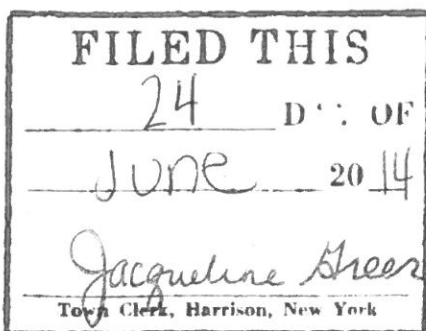 FILED THIS
24 D OF
June 20 14
Jacqueline Greer
Town Clerk, Harrison, New York